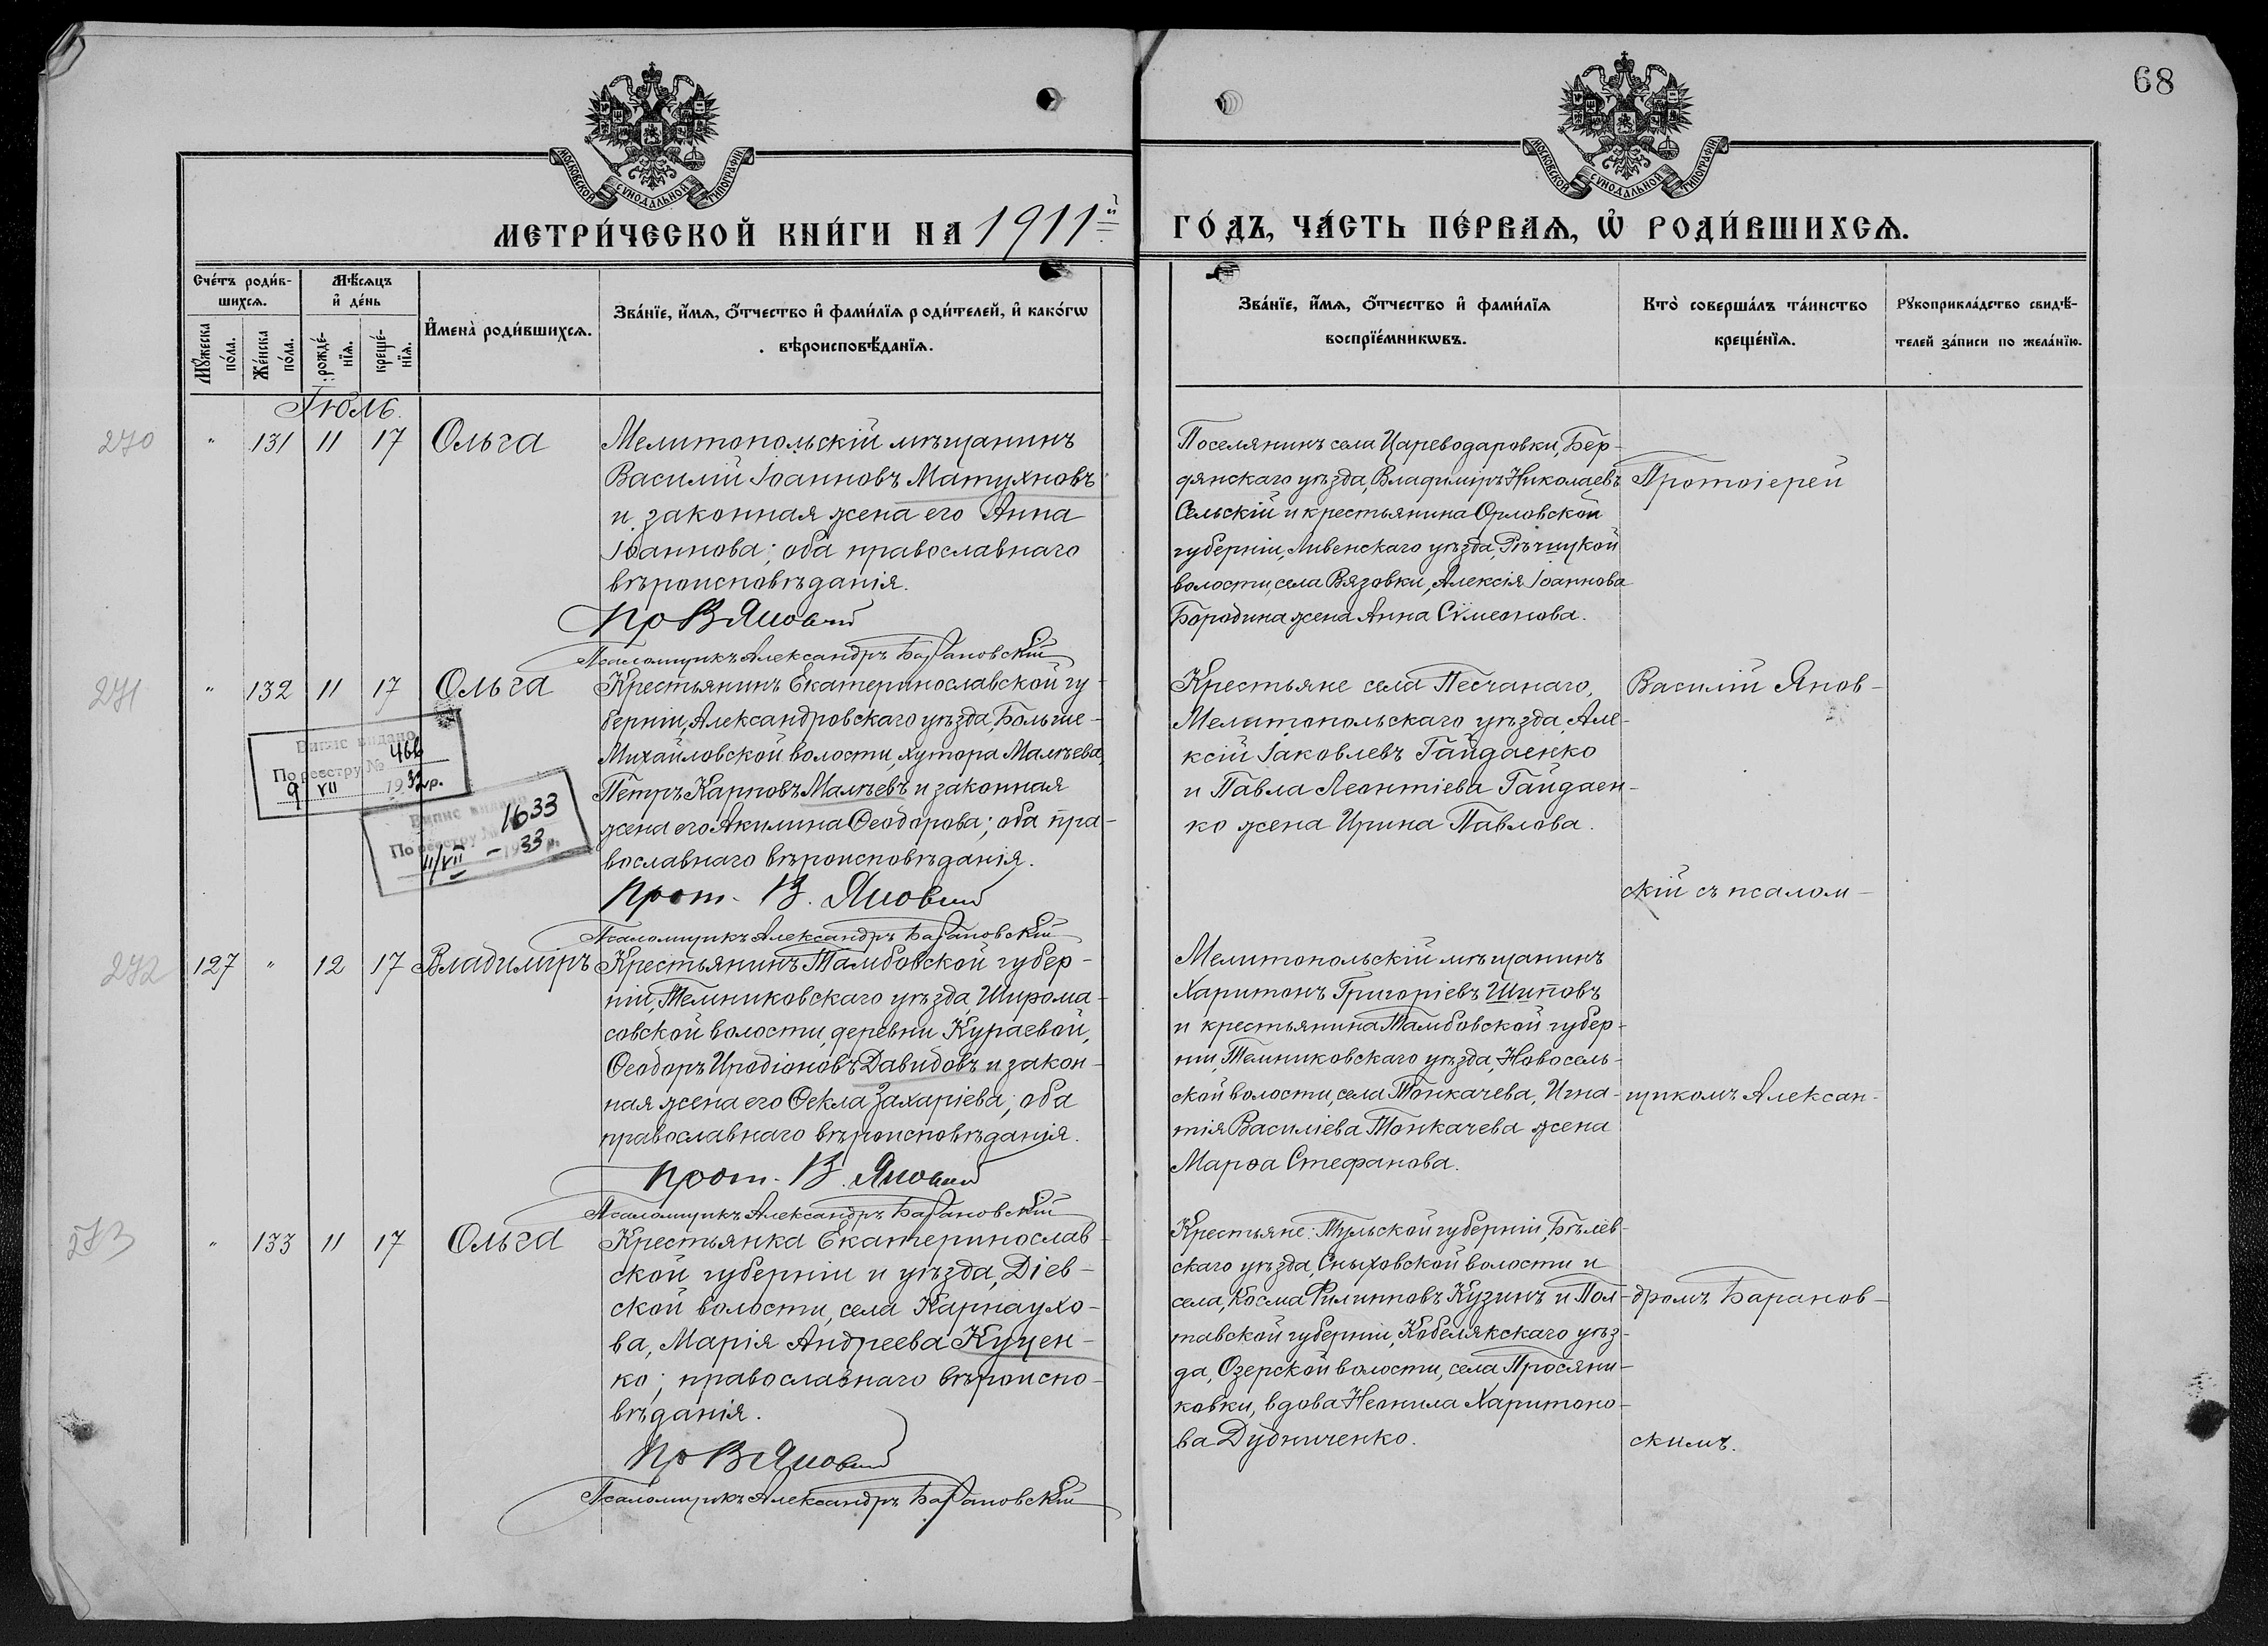 68
МОСКОВСКОЙ СУНОДАЛЬНОЙ ТИПОГРАФІИ
МОСКОВСКОЙ СУНОДАЛЬНОЙ ТИПОГРАФІИ
МЕТРИ́ЧЕСКОЙ КНИ́ГИ НА 1911й
ГО́ДЪ, ЧА́СТЬ ПЕ́РВАѦ, Ѡ҆ РОДИ́ВШИХСѦ.
Сче́тъ роди́в-
шихсѧ.
Мꙋ́жеска
по́ла.
Же́нска
по́ла.
Мѣ́сѧцъ
и҆ де́нь
рожде́-
нїѧ.
креще́-
нїѧ.
И҆мена̀ роди́вшихсѧ.
Зва́нїе, и҆́мѧ, ѻ҆́тчество и҆ фами́лїѧ роди́телей, и҆ како́гѡ
вѣроисповѣ́данїѧ.
Зва́нїе, и҆́мѧ, ѻ҆́тчество и҆ фами́лїѧ
воспрїе́мникѡвъ.
Кто̀ соверша́лъ та́инство
креще́нїѧ.
Рꙋкоприкла́дство свидѣ́-
телей за́писи по жела́нїю.
Іюль.
270 " 131 11 17 Ольга
Мелитопольскій мѣщанинъ
Василій Іоанновъ Матухновъ
и законная жена его Анна
Іоаннова; оба православнаго
вѣроисповѣданія.
Пр В Яновскій
Псаломщикъ Александръ Барановскій
Поселянинъ села Цареводаровки, Бер-
дянскаго уѣзда, Владиміръ Николаевъ
Сельскій и крестьянина Орловской
губерніи, Ливенскаго уѣзда, Рѣчицкой
волости, села Вязовки, Алексія Іоаннова
Бородина жена Анна Сѵмеонова.
Протоіерей
271 " 132 11 17 Ольга
Випис видано
По реєстру № 466
9 VII 1932р.
Випис видано
По реєстру № 1633
11/VII - 1933 р.
Крестьянинъ Екатеринославской гу-
берніи, Александровскаго уѣзда, Больше-
Михайловской волости, хутора Малѣева,
Петръ Карповъ Малѣевъ и законная
жена его Акилина Ѳеодорова; оба пра-
вославнаго вѣроисповѣданія.
Прот. В. Яновскій
Псаломщикъ Александръ Барановскій
Крестьяне села Песчанаго,
Мелитопольскаго уѣзда, Але-
ксій Іаковлевъ Гайдаенко
и Павла Леонтіева Гайдаен-
ко жена Ирина Павлова.
Василій Янов-
скій съ псалом-
272 127 " 12 17 Владиміръ
Крестьянинъ Тамбовской губер-
ніи, Темниковскаго уѣзда, Широма-
совской волости, деревни Кураевой,
Ѳеодоръ Иродіоновъ Давидовъ и закон-
ная жена его Ѳекла Захаріева; оба
православнаго вѣроисповѣданія.
Прот. В. Яновскій
Псаломщикъ Александръ Барановскій
Мелитопольскій мѣщанинъ
Харитонъ Григоріевъ Шиповъ
и крестьянина Тамбовской губер-
ніи, Темниковскаго уѣзда, Новосель-
ской волости, села Тонкачева, Игна-
тія Василіева Тонкачева жена
Марѳа Стефанова.
щикомъ Алексан-
273 " 133 11 17 Ольга
Крестьянка Екатеринослав-
ской губерніи и уѣзда, Діев-
ской волости, села Карнаухо-
ва, Марія Андреева Куцен-
ко; православнаго вѣроиспо-
вѣданія.
Пр В Яновскій
Псаломщикъ Александръ Барановскій
Крестьяне: Тульской губерніи, Бѣлев-
скаго уѣзда, Сныховской волости и
села, Косма Филипповъ Кузинъ и Пол-
тавской губерніи, Кобелякскаго уѣз-
да, Озерской волости, села Просяни-
ковки, вдова Неонила Харитоно-
ва Дудниченко.
дромъ Баранов-
скимъ.